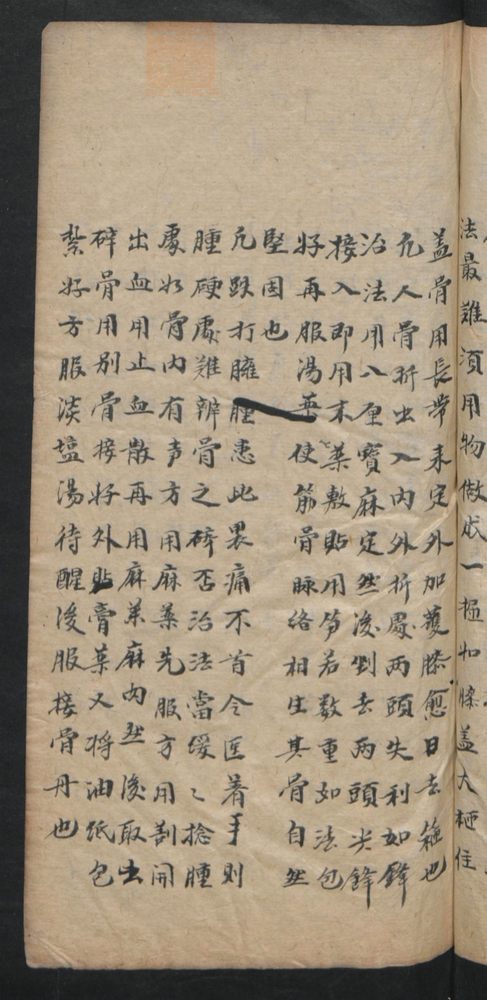 法最難須用物做成一 如膝蓋大 住
盖骨用長帶束定外加護膝愈日去箍也
凢人骨折出入內外折處兩頭失利如鋒
治法用八厘寶麻定然後剉去兩頭尖鋒
接入即用末藥敷貼用笋若數重如法包
好再服湯藥使筋骨脉絡相生其骨自然
堅固也
凢跌打臃腫患此畏痛不首令匡着手則
腫硬處難辨骨之碎否治法當缓〻捻腫
處如骨內有声方用麻藥先服方用割開
出血用止血散再用麻藥麻內然後取出
碎骨用别骨接好外貼膏藥又将油紙包
紮好方服淡塩湯待醒後服接骨丹也